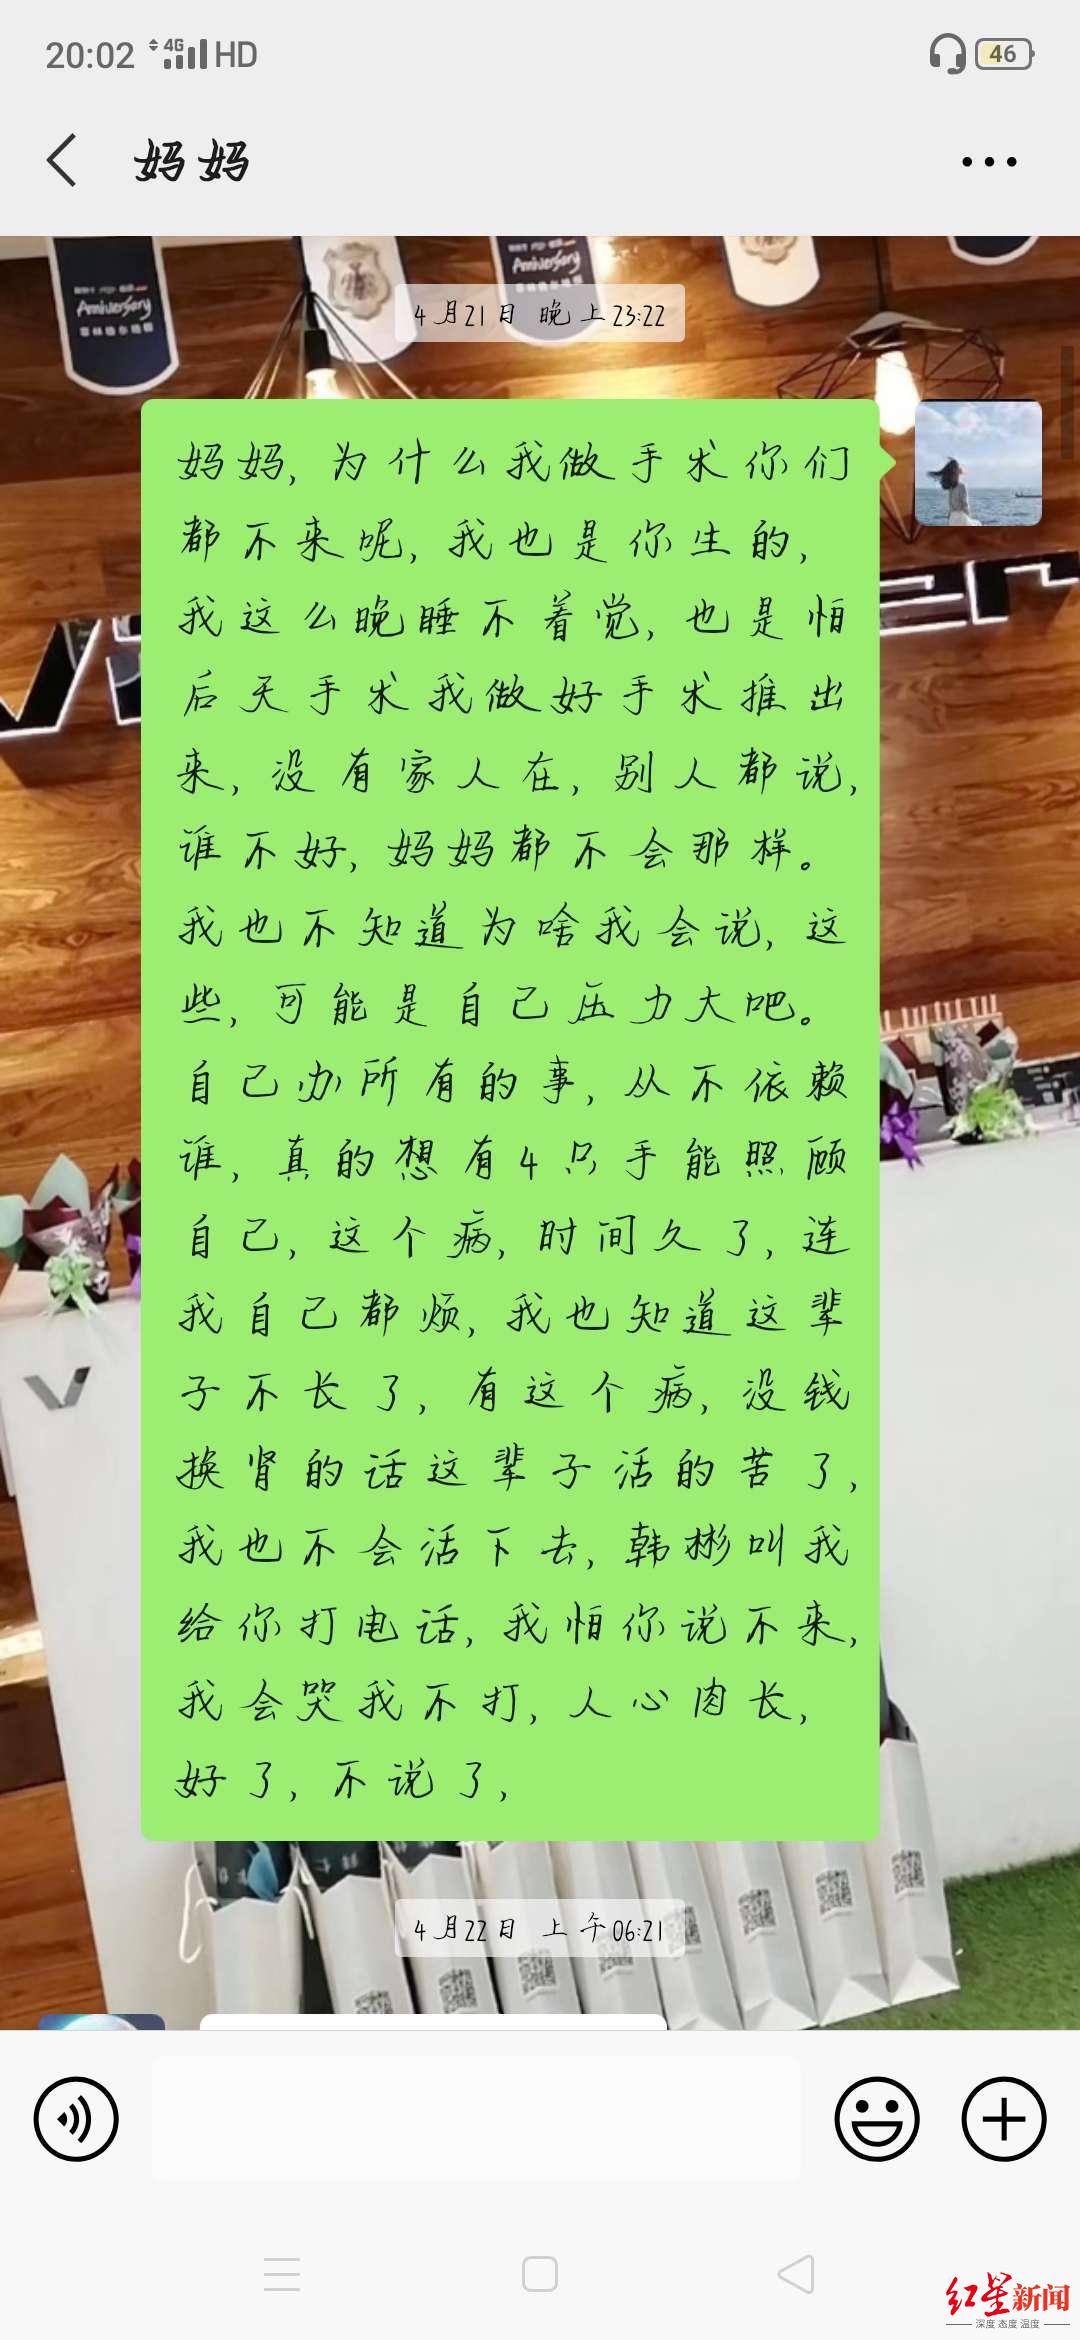 20:02 4G HD 46
妈妈
Anniversary
Anniversary
4月21日 晚上23:22
妈妈,为什么我做手术你们
都不来呢,我也是你生的,
我这么晚睡不着觉,也是怕
后天手术我做好手术推出
来,没有家人在,别人都说,
谁不好,妈妈都不会那样。
我也不知道为啥我会说,这
些,可能是自己压力大吧。
自己办所有的事,从不依赖
谁,真的想有4只手能照顾
自己,这个病,时间久了,连
我自己都烦,我也知道这辈
子不长了,有这个病,没钱
换肾的话这辈子活的苦了,
我也不会活下去,韩彬叫我
给你打电话,我怕你说不来,
我会哭我不打,人心肉长,
好了,不说了,
4月22日 上午06:21
红星新闻
深度 态度 温度